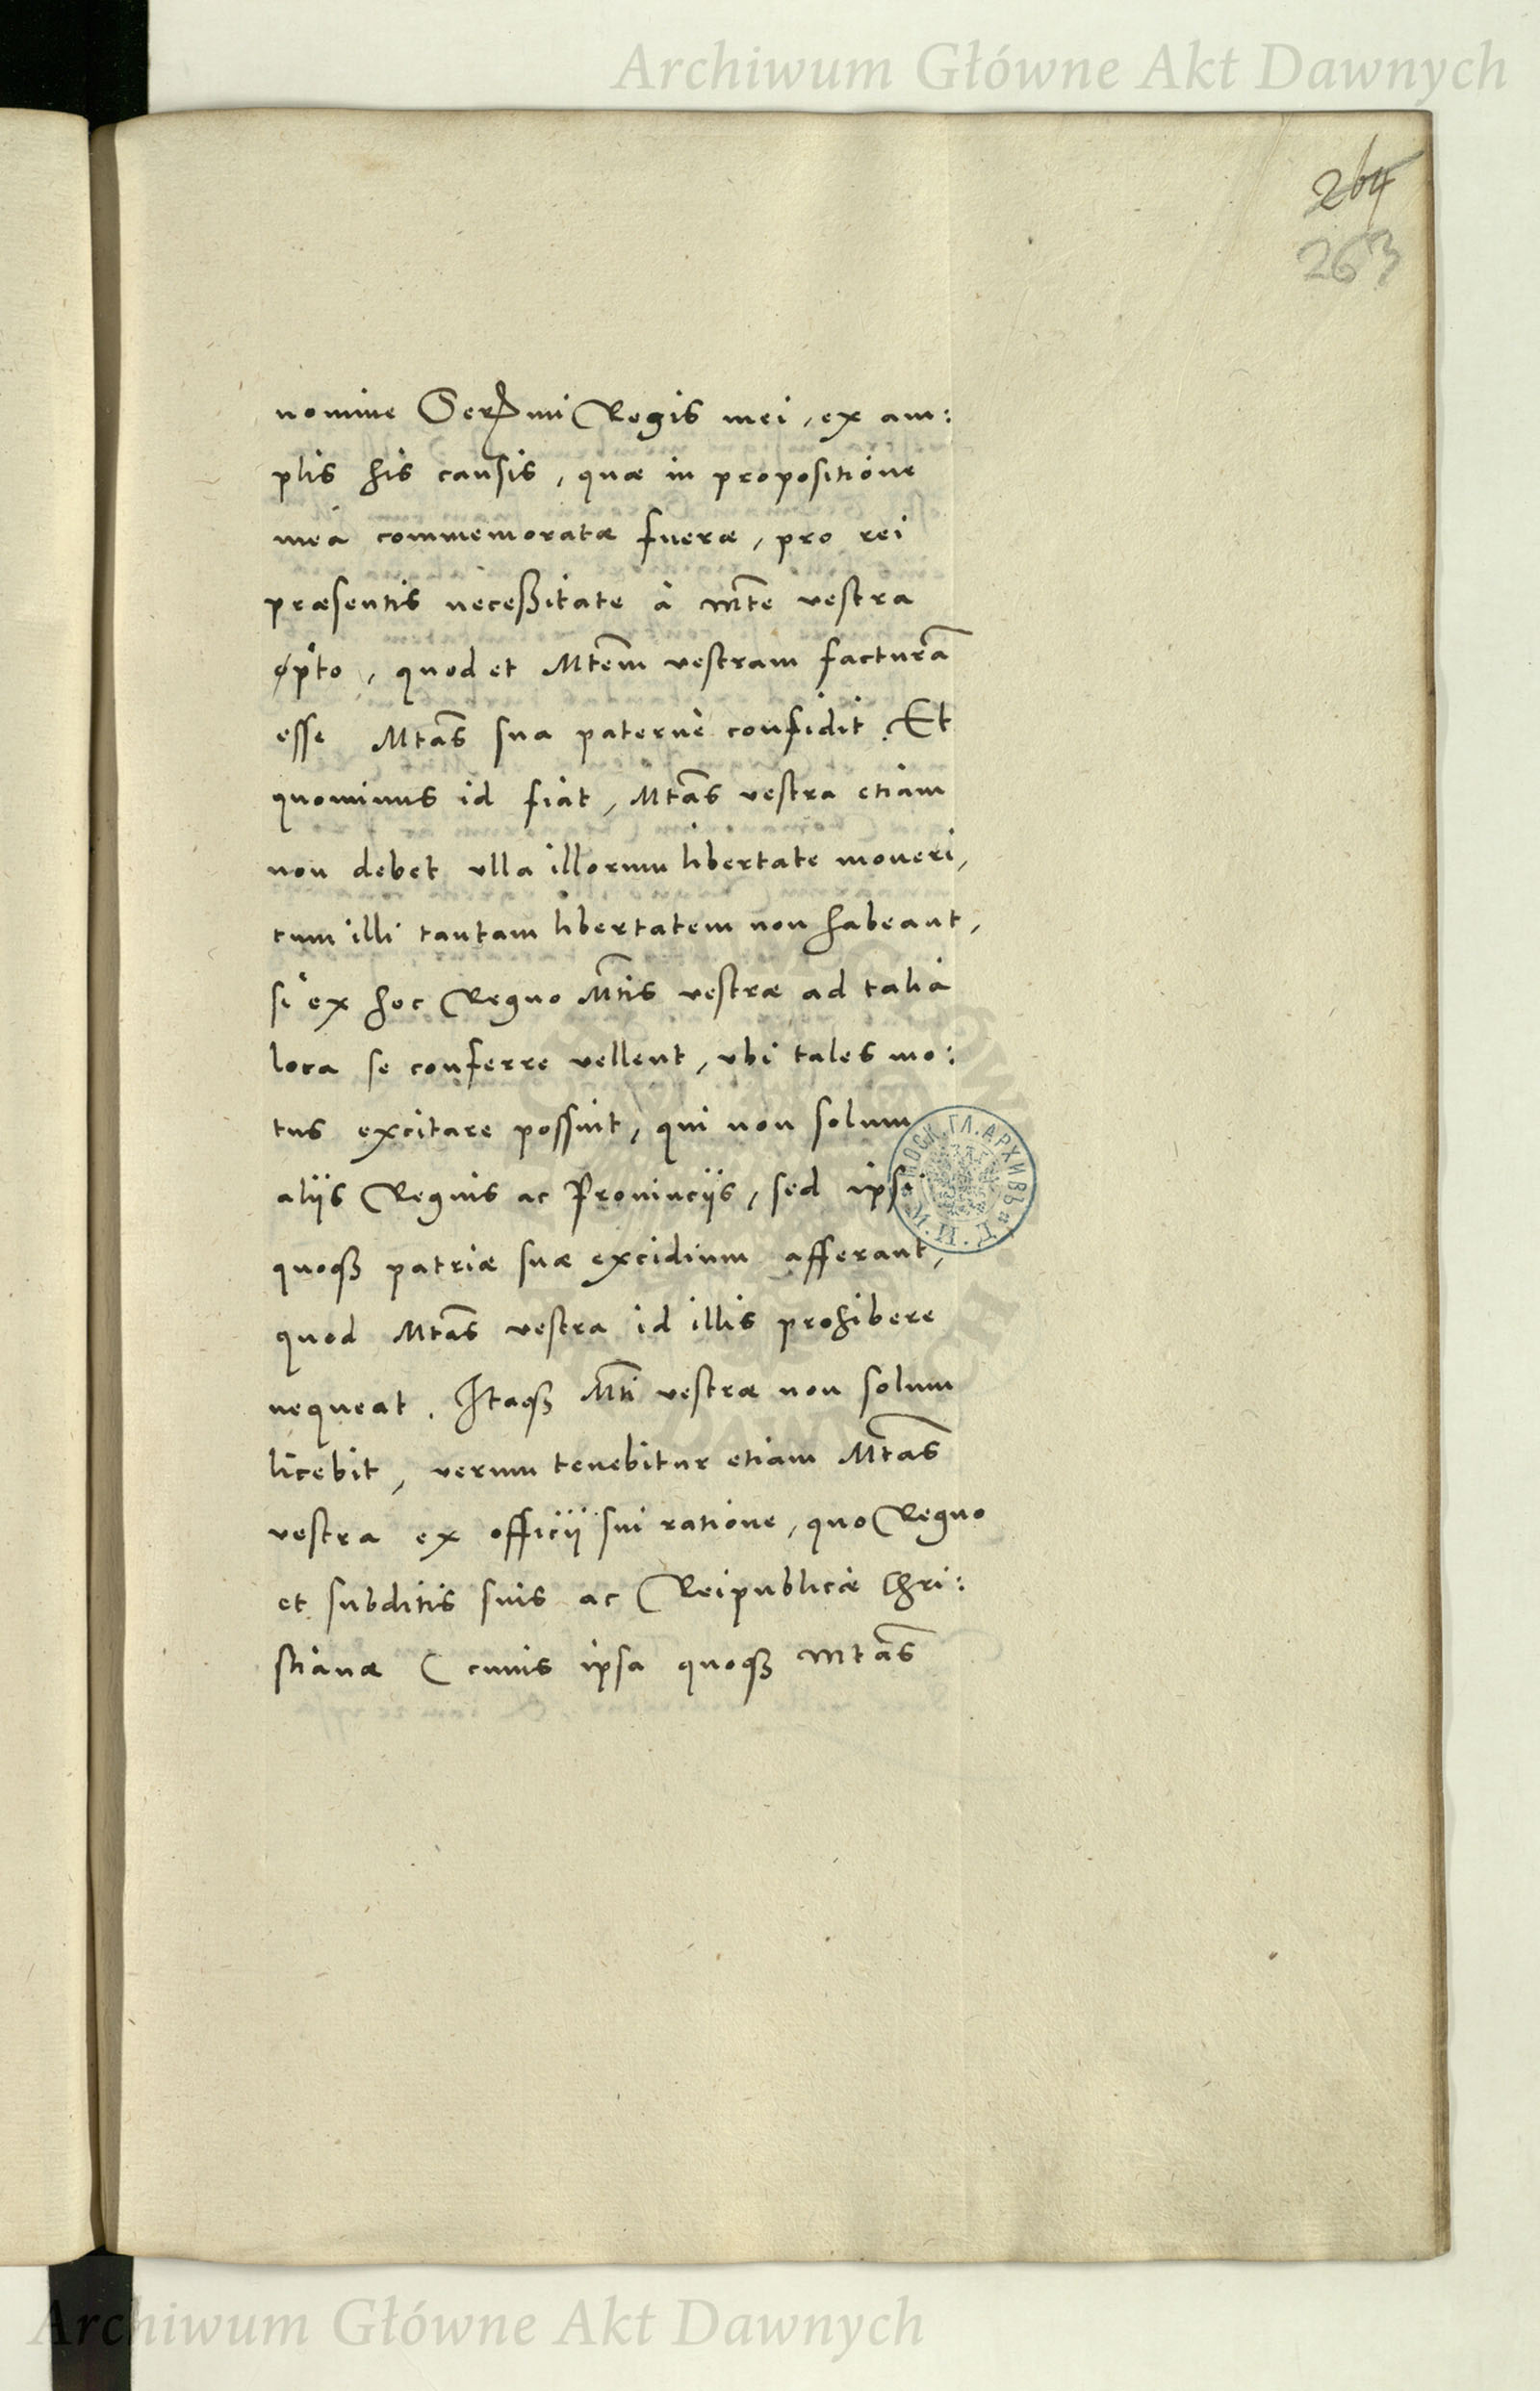 Archiwum Główne Akt Dawnych
264
263
nomine Sermi Regis mei, ex am:
plis his causis, quæ in propositione
mea commemoratæ fueræ, pro rei
præsentis neceßitate à Mte vestra
opto, quod et Mtem vestram facturā
esse Mtas sua paternè confidit. Et
quominus id fiat, Mtas vestra etiam
non debet ulla illorum libertate moueri,
cum illi tantam libertatem non habeant,
si ex hoc Regno Mtis vestræ ad talia
loca se conferre vellent, vbi tales mo:
tus excitare possint, qui non solum
aliis Regnis ac Prouincijs, sed ipsi
quoqȝ patriæ suæ excidium afferant,
quod Mtas vestra id illis prohibere
nequeat. Itaqȝ Mti vestræ non solum
licebit, verum tenebitur etiam Mtas
vestra ex officij sui ratione, quo Regno
et subditis suis ac Reipublicæ Chri:
stianæ (cuius ipsa quoqȝ Mtas
Archiwum Główne Akt Dawnych